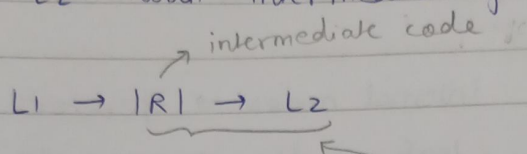 intermediate code
L1 → IRI → L2